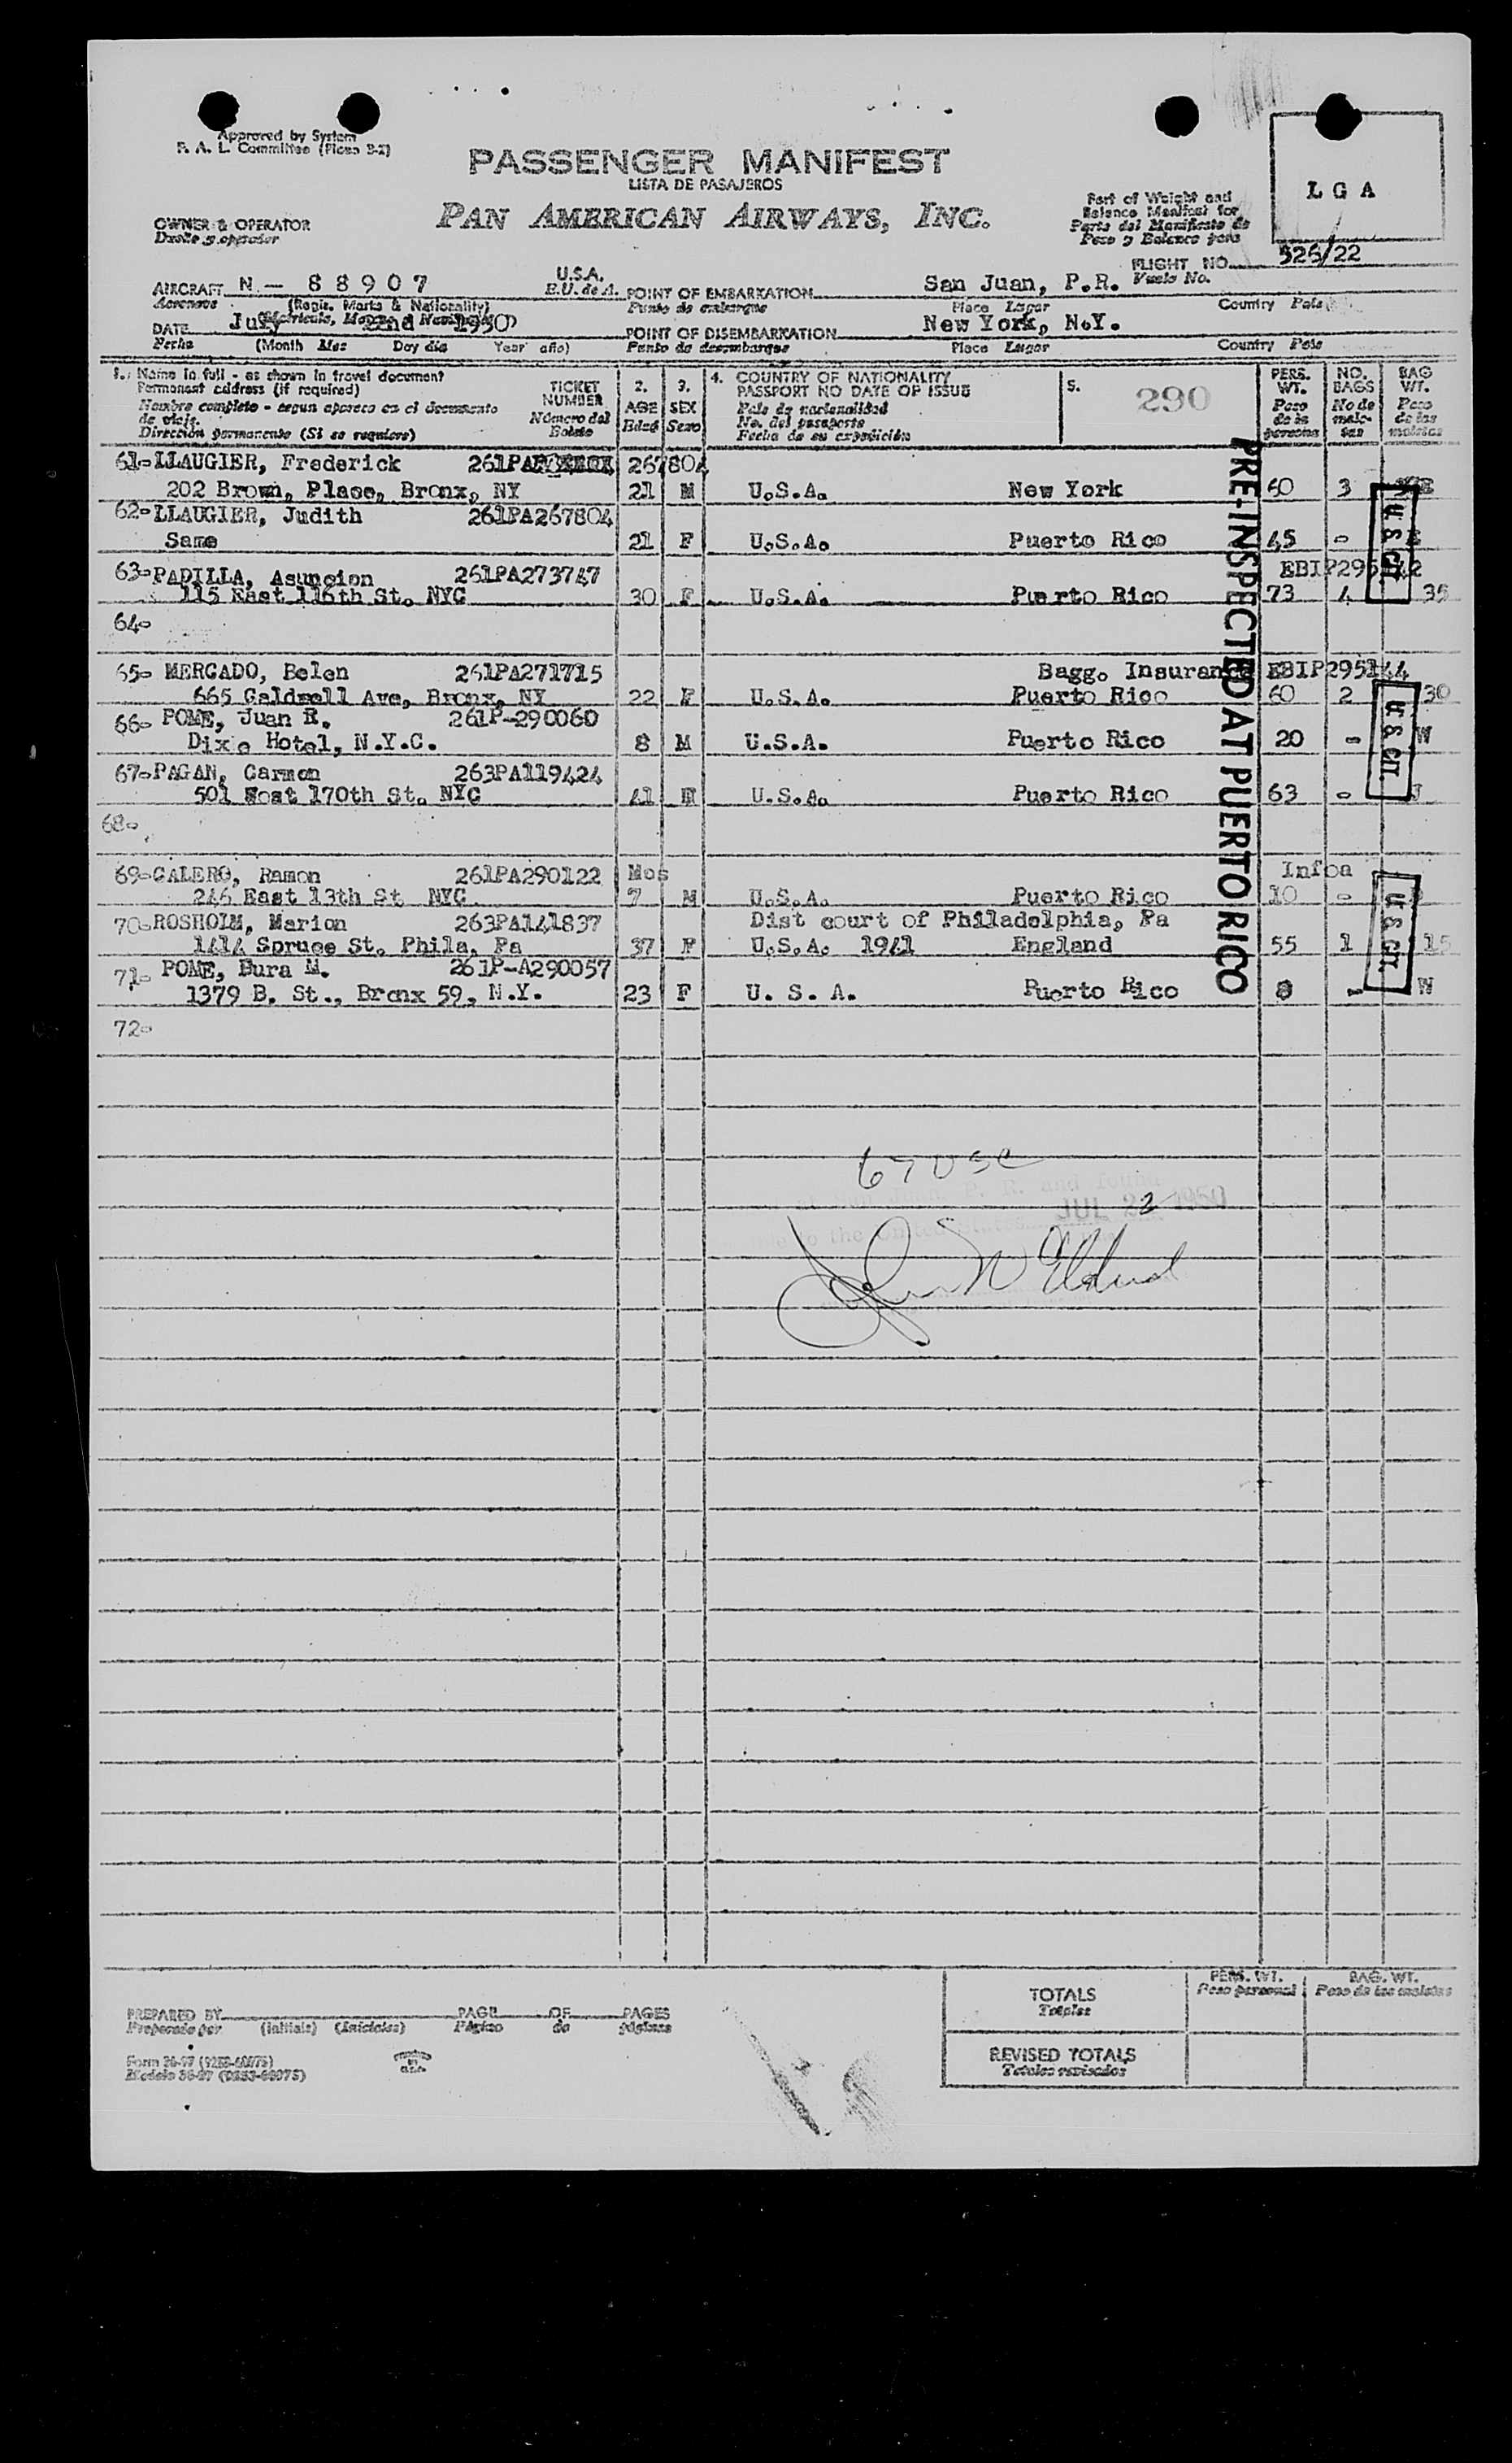 Approved by System
F. A. L. Committee (Picao 3-2)
PASSENGER MANIFEST
LISTA DE PASAJEROS
PAN AMERICAN AIRWAYS, INC.
OWNER & OPERATOR
Dueño y operador
Part of Weight and
Balance Manifest for
Parte del Manifiesto de
Peso y Balance para
L G A
FLIGHT NO. 526/22
Vuelo No.
AIRCRAFT N - 88907 U.S.A.
Aeronave (Regis. Marks & Nationality) E.U. de A.
POINT OF EMBARKATION San Juan, P.R.
Punto de embarque Place Lugar Country País
DATE July 22nd 1950
Fecha (Month Mes Day día Year año)
POINT OF DISEMBARKATION New York, N.Y.
Punto de desembarque Place Lugar Country País
1. Name in full - as shown in travel document
Permanent address (if required)
Nombre completo - segun aparece en el documento
de viaje.
Dirección permanente (Si se requiere)
TICKET
NUMBER
Número del
Boleto
2.
AGE
Edad
3.
SEX
Sexo
4. COUNTRY OF NATIONALITY
PASSPORT NO DATE OF ISSUE
País de nacionalidad
No. del pasaporte
Fecha de su expedición
5.
290
PERS.
WT.
Peso
de la
persona
NO.
BAGS
No de
male-
tas
BAG
WT.
Peso
de las
maletas
61-LLAUGIER, Frederick 261PA 267804
202 Brown, Place, Bronx, NY 21 M U.S.A. New York 60 3
62-LLAUGIER, Judith 261PA267804
Same 21 F U.S.A. Puerto Rico 45 -
63-PADILLA, Asuncion 261PA273747
115 East 116th St. NYC 30 F U.S.A. Puerto Rico 73 4 35
64-
65- MERCADO, Belen 261PA271715 Bagg. Insurance EBIP295144
665 Caldwell Ave, Bronx, NY 22 F U.S.A. Puerto Rico 60 2 30
66- POME, Juan R. 261P-290060
Dixe Hotel, N.Y.C. 8 M U.S.A. Puerto Rico 20 - W
67-PAGAN, Carmen 263PA119424
501 West 170th St. NYC 41 U.S.A. Puerto Rico 63 -
68-
69-CALERO, Ramon 261PA290122 Mos
246 East 13th St NYC 7 M U.S.A. Puerto Rico 10 -
70-ROSHOLM, Marion 263PA141837 Dist court of Philadelphia, Pa
1414 Spruce St. Phila, Pa 37 F U.S.A. 1941 England 55 1 15
71- POME, Bura M. 261P-A290057
1379 B. St., Bronx 59, N.Y. 23 F U. S. A. Puerto Rico - W
72-
PRE-INSPECTED AT PUERTO RICO
U S CIT.
U S CIT.
U S CIT.
67 USC
at San Juan, P. R. and found
JUL 22 1950
to the United States
PREPARED BY PAGE OF PAGES
Preparado por (Initials) (Iniciales) Página de páginas
TOTALS
Totales
PERS. WT.
Peso personal
BAG. WT.
Peso de las maletas
REVISED TOTALS
Totales revisados